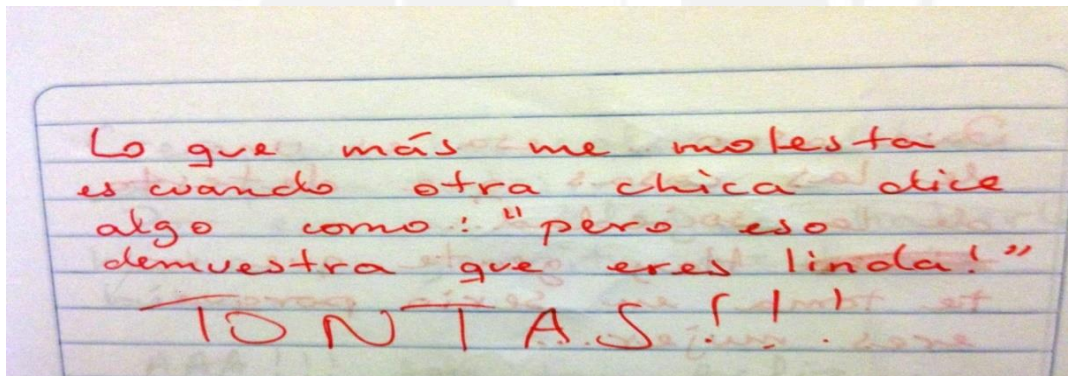 Lo que más me molesta
es cuando otra chica dice
algo como: "pero eso
demuestra que eres linda!"
TONTAS!!!